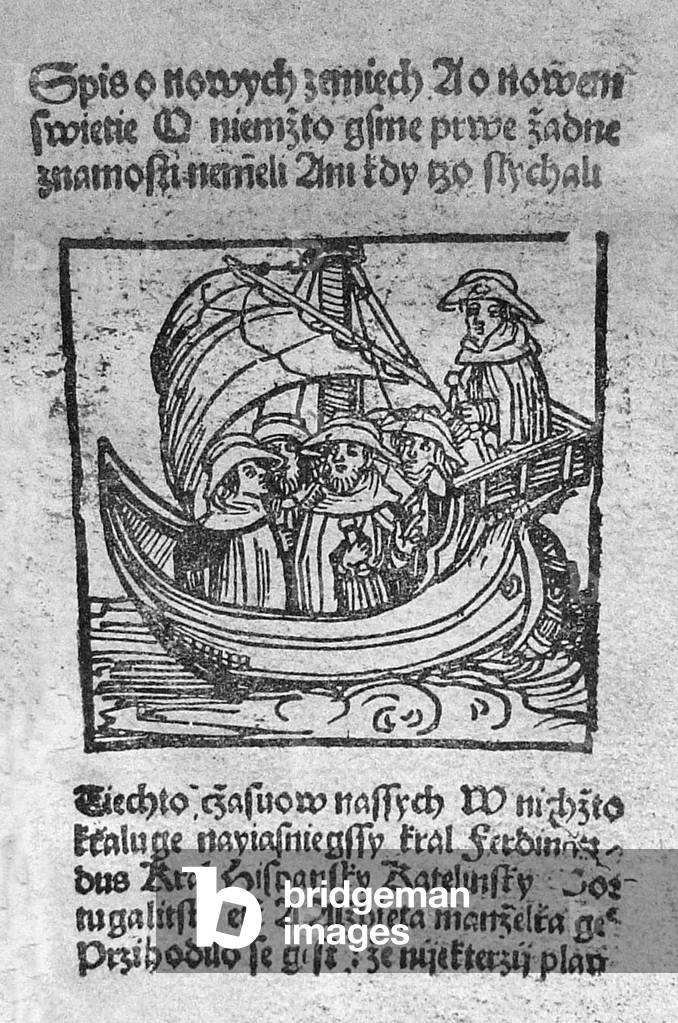 Spis o nowych zemiech A o nowem
swietie O niemžto gsme prwe žadne
znamosti nemeli Ani kdy tzo slychali
Tiechto čzasuow nassych W nichžto
kraluge nayiasniegssy kral Ferdinan-
dus Kral Hispansky Katelinsky
A Alžbieta manželka ge°
Przihodilo se gest že niekterzij plaw
bridgeman
images